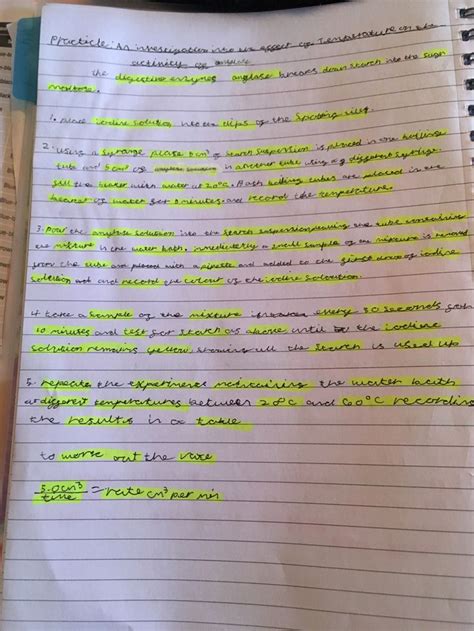 Practicle: An investigation into the effect of Temperature on the
activity of amylase
the digestive enzymes amylase breaks down starch into the sugar
maltose.
1. place iodine solution into the dips of the spotting tile
2. using a syringe place 5cm³ of starch suspension is placed in one boiling
tube and 5cm³ of in another tube using a different syringe.
fill the beaker with water at 20°C. Both boiling tubes are placed in the
beaker of water for 5 minutes and record the temperature
3. Pour the amylase solution into the starch suspension leaving the tube containing
the mixture in the water bath, immediately a small sample of the mixture is removed
from the tube and placed with a pipette and added to the first drop of iodine
solution and record the colour of the iodine solution.
4 take a sample of the mixture every 30 seconds for
10 minutes and test for starch as above until the iodine
solution remains yellow showing all the starch is used up
5. repeate the experiments maintaining the water bath
at different temperatures between 20°C and 60°C recording
the results in a table
to work out the rate
5.0cm³ = rate cm³ per min
time